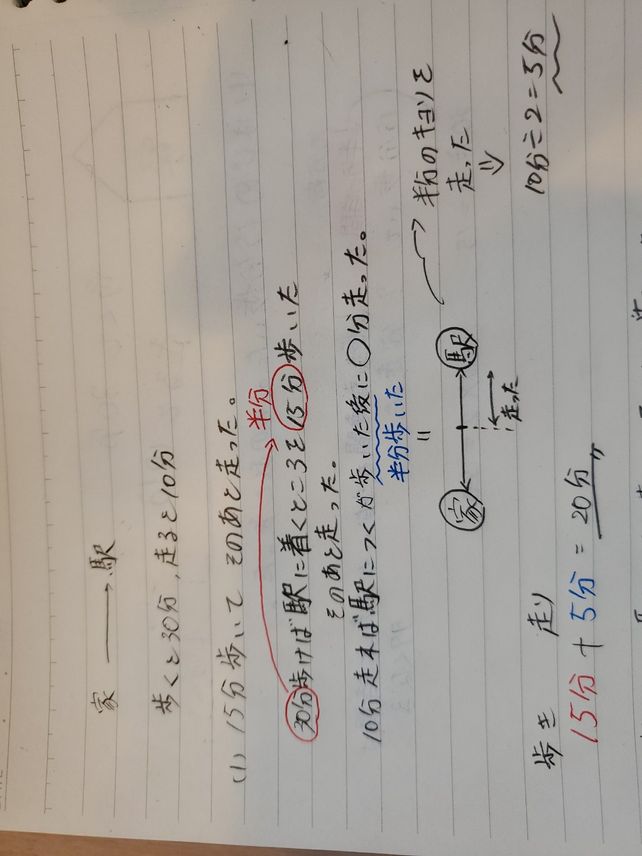 家 → 駅
歩くと30分,走ると10分
(1) 15分歩いて そのあと走った。
半分
30分歩けば駅に着くところを15分歩いた
そのあと走った。
10分走れば駅につくが歩いた後に〇分走った。
半分歩いた
=
家 駅
走った
半分のキョリを
走った
⇓
10分÷2=5分
歩き 走り
15分 + 5分 = 20分